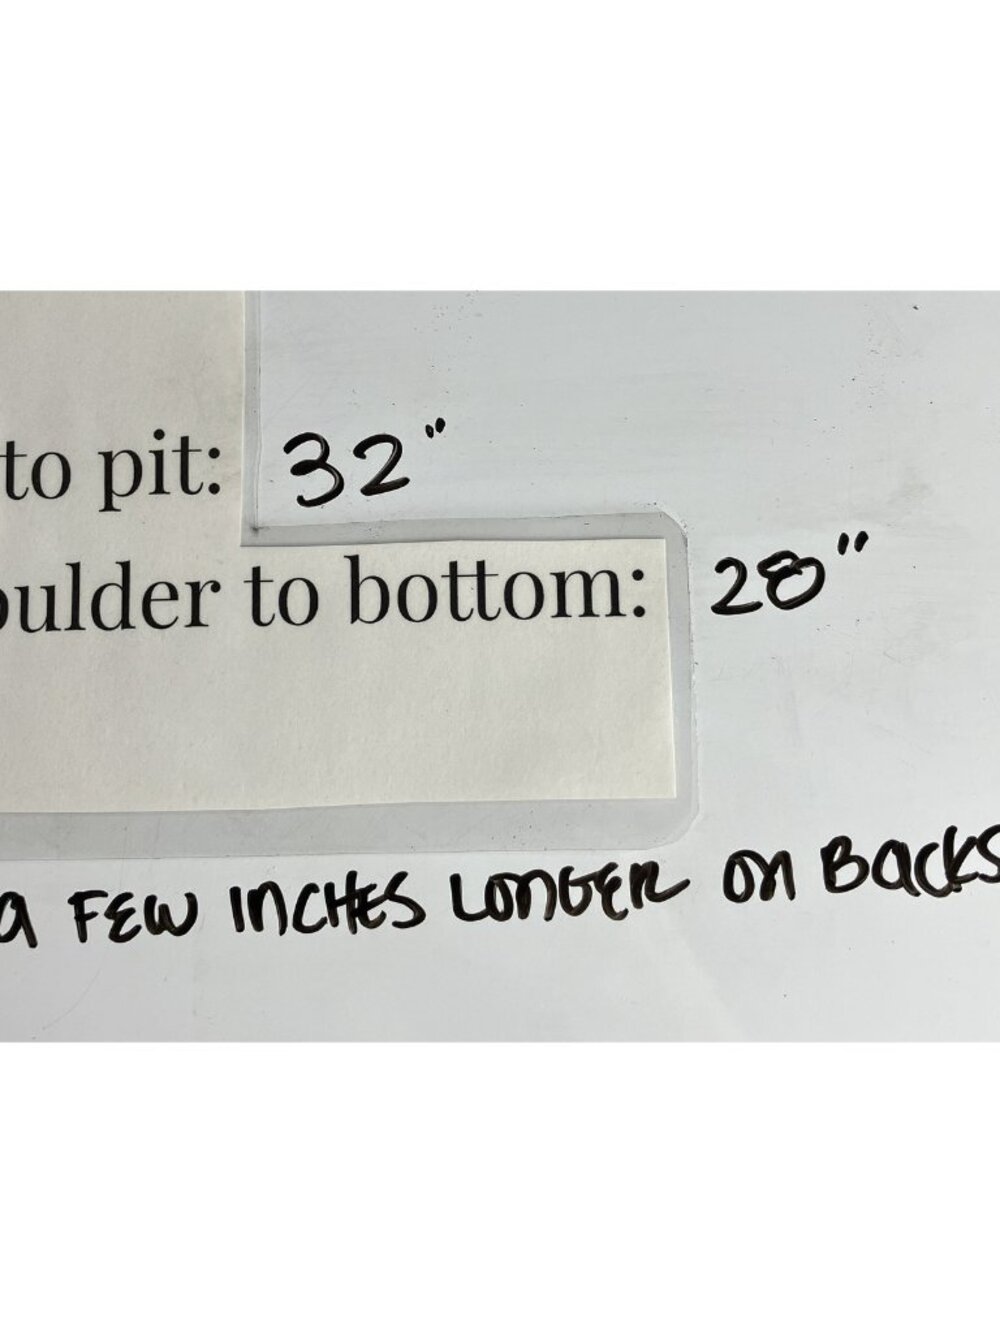 to pit: 32"
oulder to bottom: 28"
a FEW INCHES LONGER ON BACKS